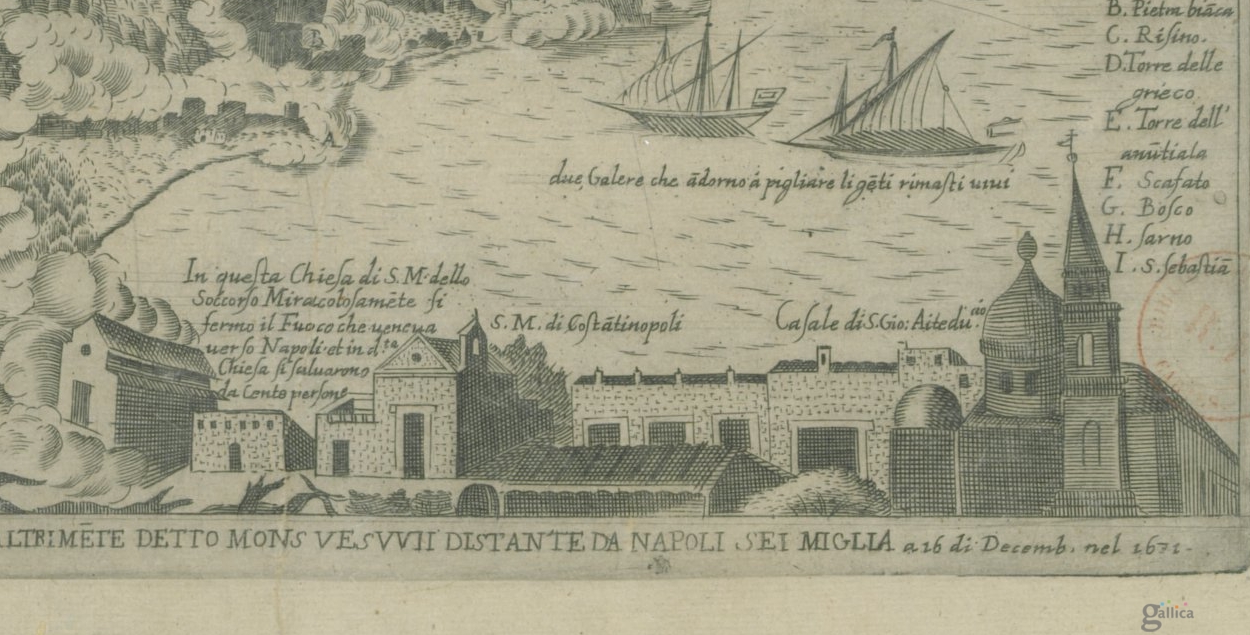 B. Pietra biãca
C. Risino.
D. Torre delle
grieco
E. Torre dell'
anũtiala
F. Scafato
G. Bosco
H. Sarno
I. S. Sebastiã
due Galere che ãdorno á pigliare li gẽti rimasti uiui
In questa Chiesa di S. M. dello
Soccorso Miracolosamẽte si
fermo il Fuoco che ueneua
uerso Napoli et in d.ta
Chiesa si saluarono
da Cento persone
S. M. di Costãtinopoli
Casale di S. Gio: A itedu.cio
LTRIMẼTE DETTO MONS VESVVII DISTANTE DA NAPOLI SEI MIGLIA a 16 di Decemb. nel 1671.
gallica